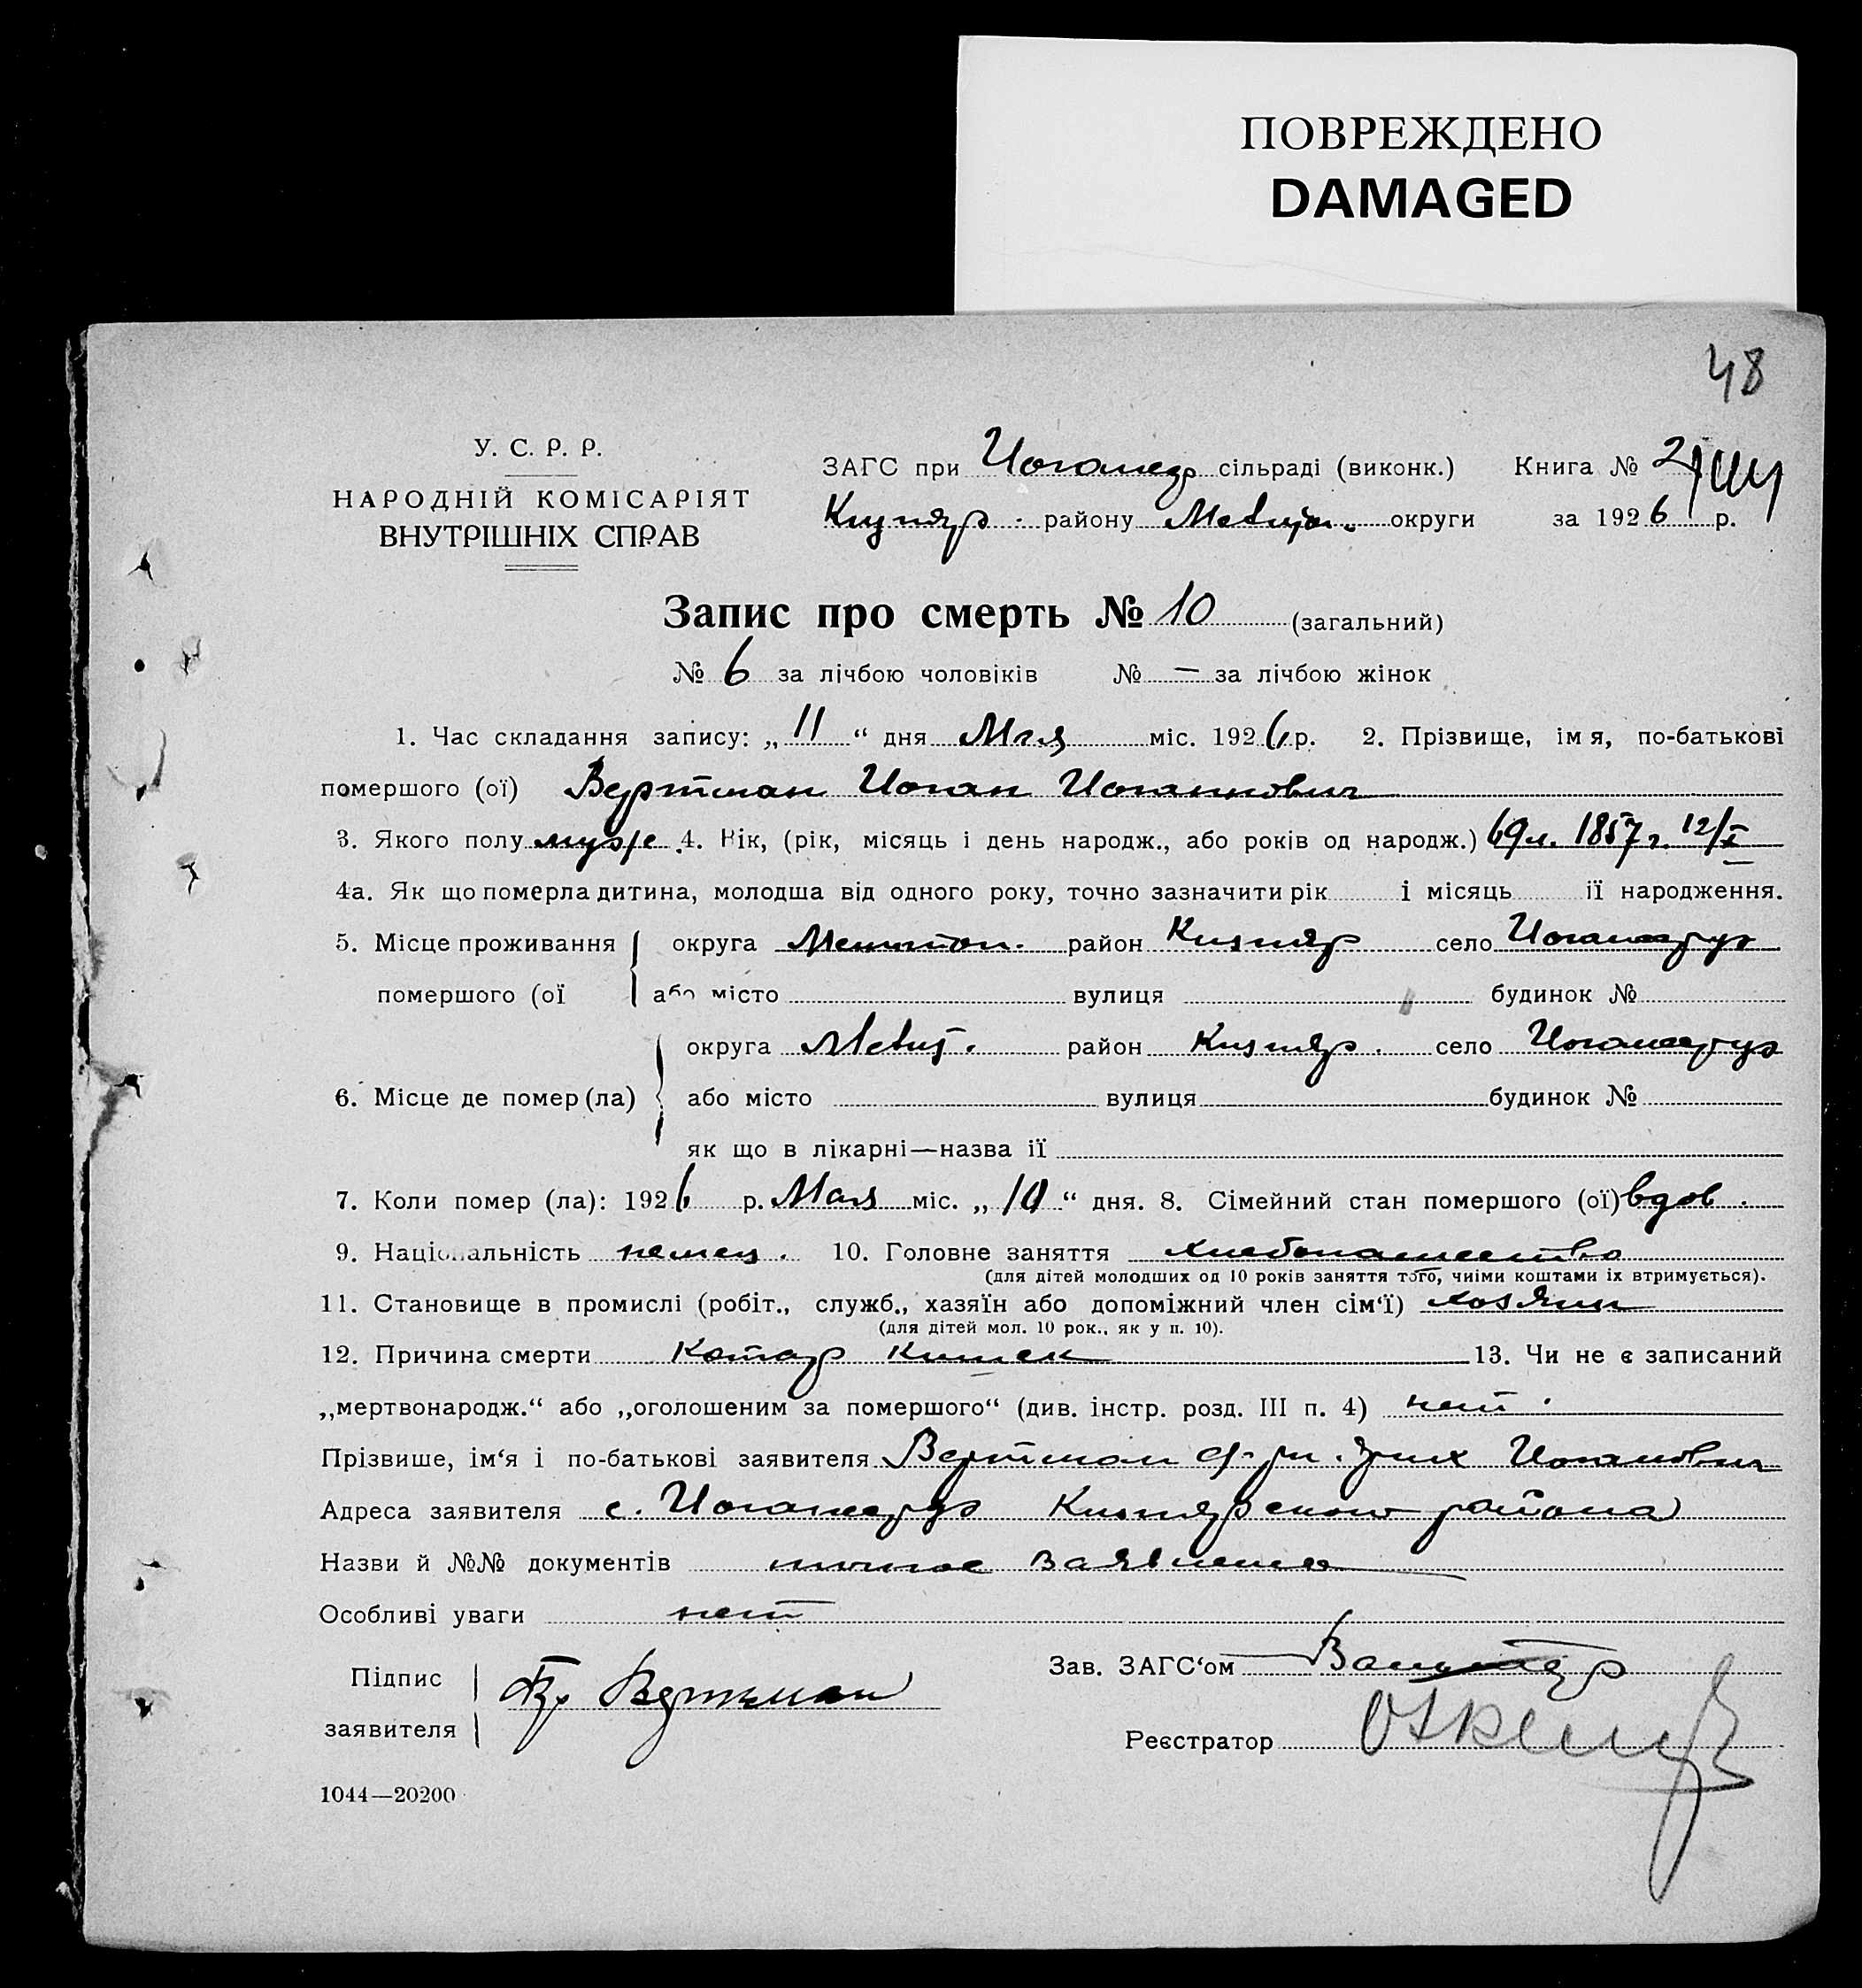 ПОВРЕЖДЕНО
DAMAGED
48
У. С. Р. Р.
НАРОДНІЙ КОМІСАРІЯТ
ВНУТРІШНІХ СПРАВ
ЗАГС при сільраді (виконк.) Книга № 2
району округи за 1926 р.
Запис про смерть № 10 (загальний)
№ 6 за лічбою чоловіків № — за лічбою жінок
1. Час складання запису: „11“ дня Мая міс. 1926 р. 2. Прізвище, імя, по-батькові
помершого (ої) Вертман Иоган Иоганнович
3. Якого полу муж. 4. Вік, (рік, місяць і день народж., або років од народж.) 69 л. 1857 г. 12/X
4а. Як що померла дитина, молодша від одного року, точно зазначити рік і місяць ії народження.
5. Місце проживання округа район Кизияр село Иоганесру
помершого (ої або місто вулиця будинок №
округа район Кизияр. село Иоганесру
6. Місце де помер (ла) або місто вулиця будинок №
як що в лікарні—назва ії
7. Коли помер (ла): 1926 р. Мая міс. „10“ дня. 8. Сімейний стан помершого (ої) вдов.
9. Національність немец. 10. Головне заняття хлебопашество
(для дітей молодших од 10 років заняття того, чиїми коштами їх втримується).
11. Становище в промислі (робіт., служб., хазяїн або допоміжний член сім‘ї) хозяин
(для дітей мол. 10 рок., як у п. 10).
12. Причина смерти Катар кишек 13. Чи не є записаний
„мертвонародж.“ або „оголошеним за помершого“ (див. інстр. розд. III п. 4) нет.
Прізвише, ім‘я і по-батькові заявителя Вертман Иоганович
Адреса заявителя с. Иоганесру Кизиярского района
Назви й №№ документів личное заявление
Особливі уваги нет
Підпис Вертман Зав. ЗАГС‘ом
заявителя Реєстратор
1044—20200